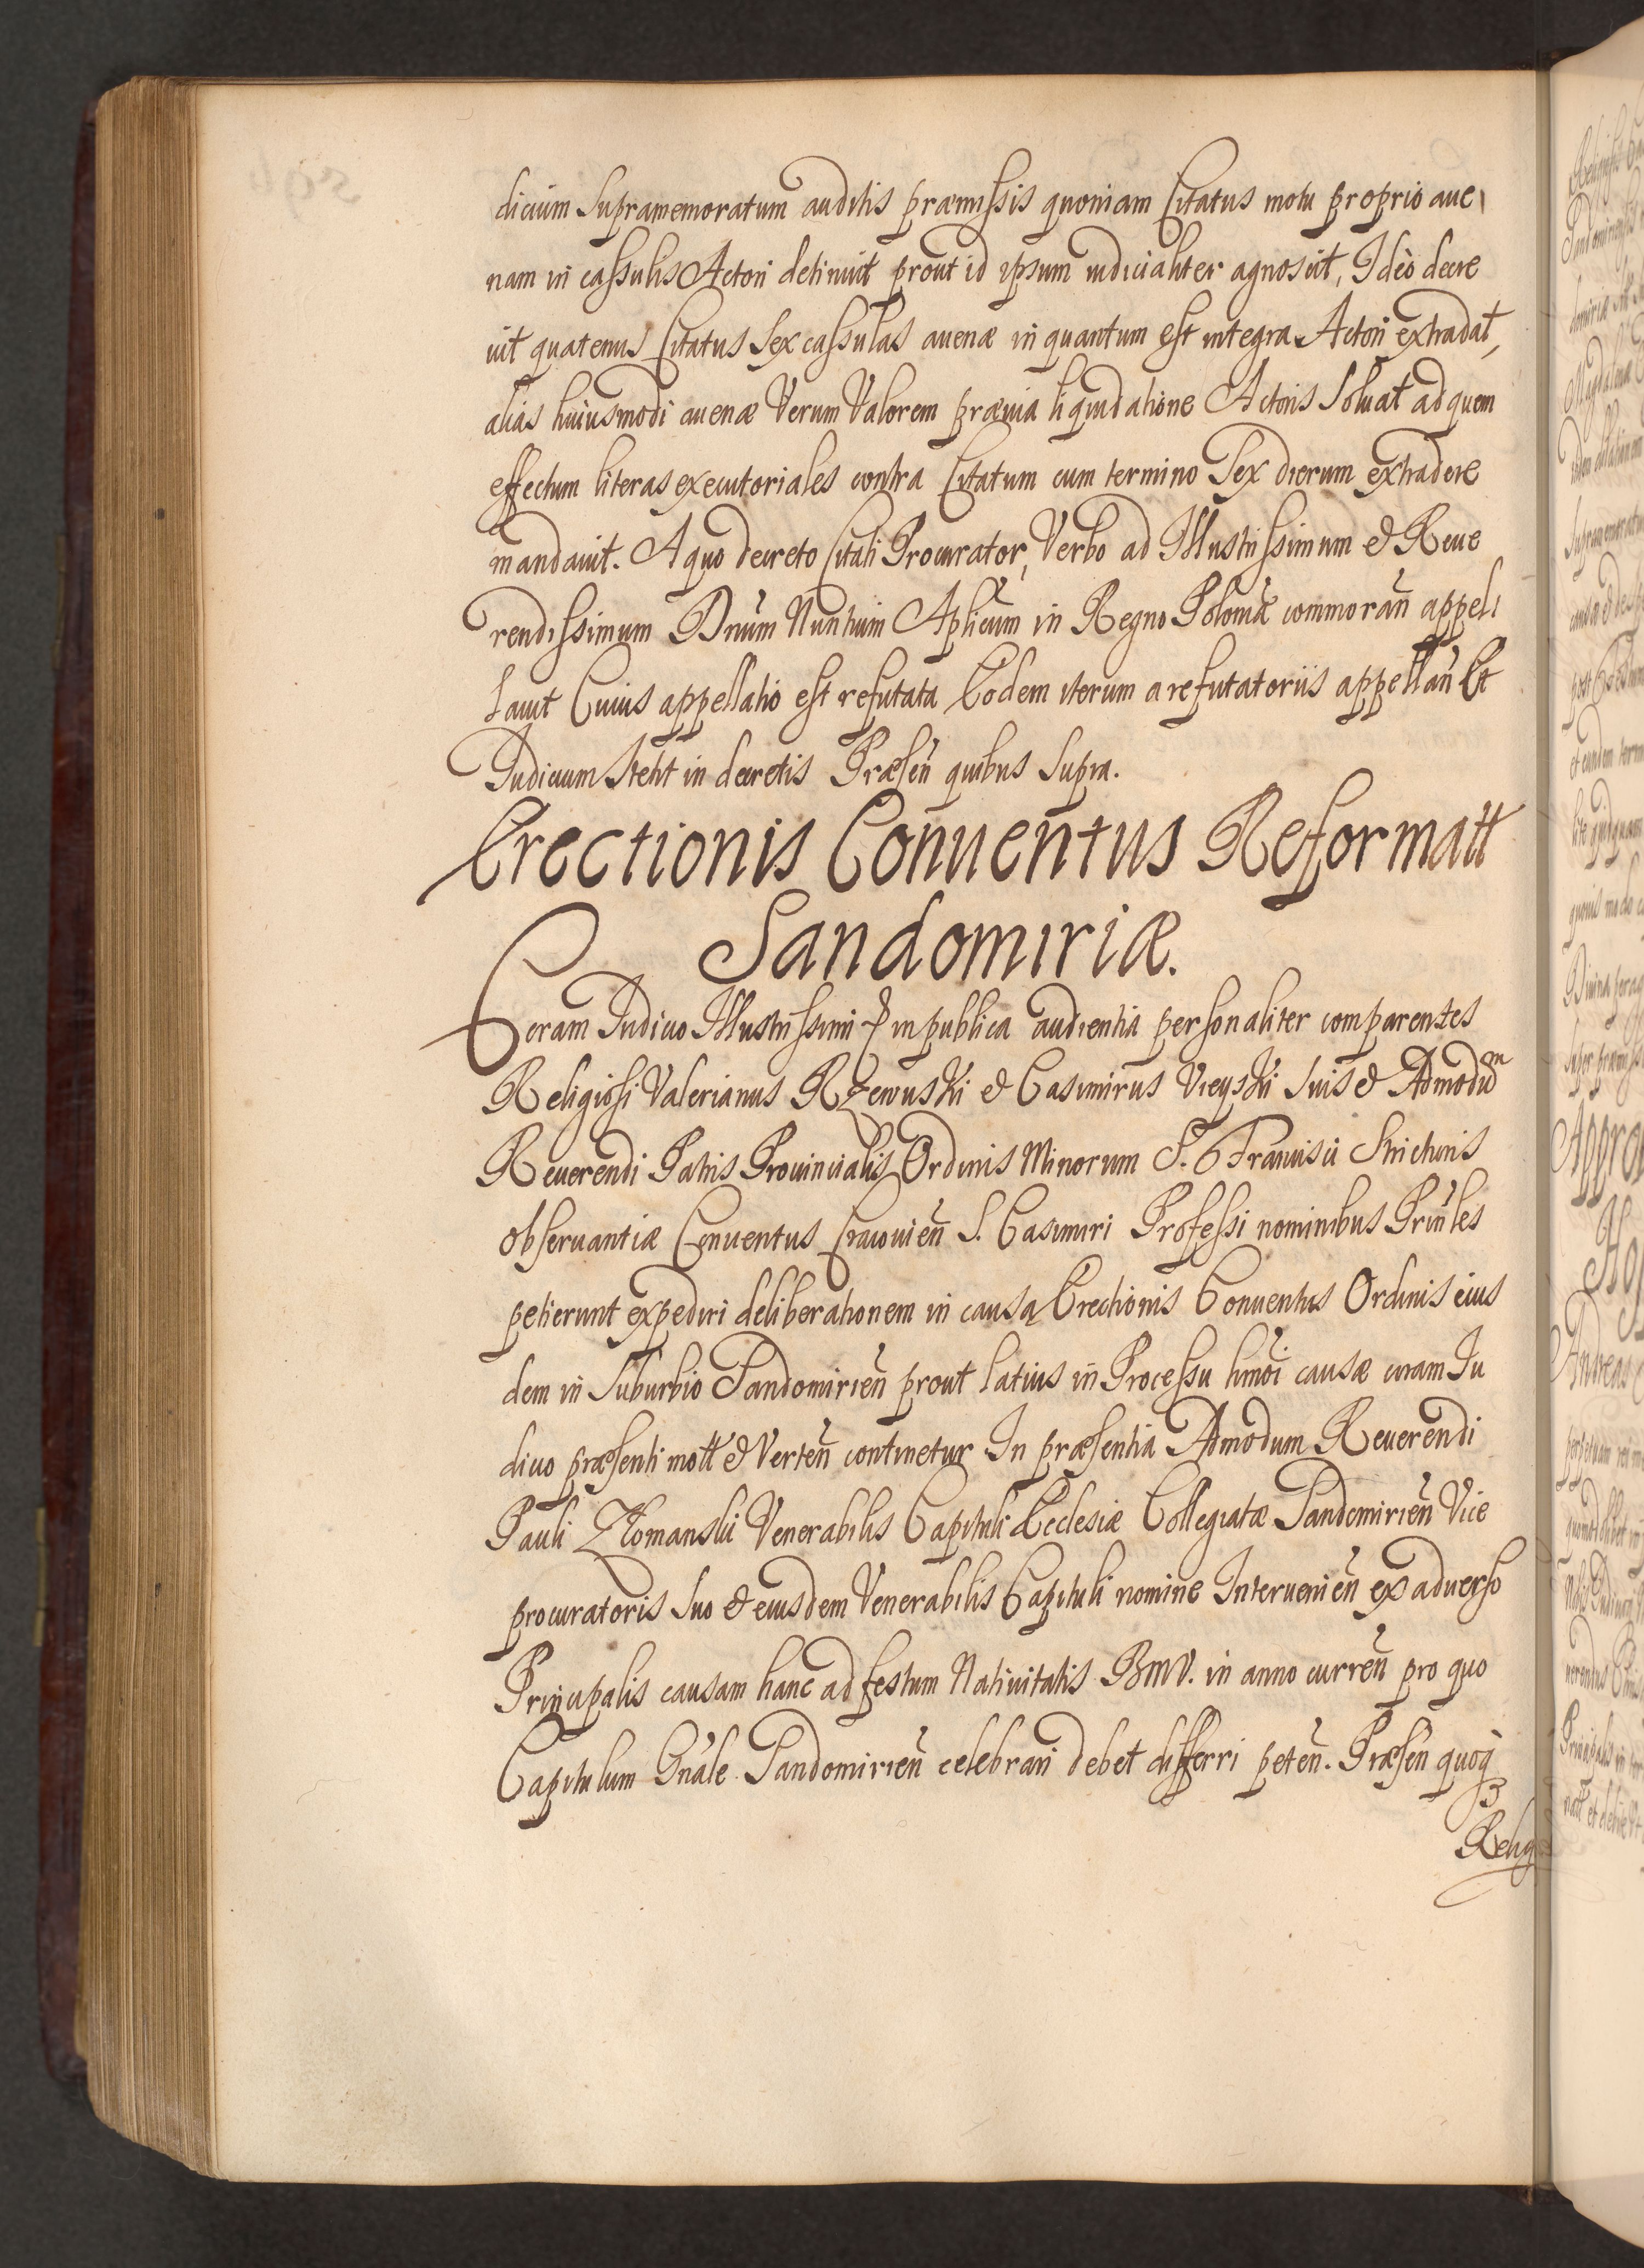 dicium supramemoratum auditis præmissis quoniam Citatus motu proprio aue
nam in cassulis Actori detinuit prout id ipsum iudicialiter agnoscit, Ideò decre
uit quatenus Citatus sex cassulas auenæ in quantum est integra Actori extradat,
alias huiusmodi auenæ Verum Valorem præuia liquidatione Actoris soluat ad quem
effectum literas executoriales contra Citatum cum termino sex dierum extradere
mandauit. A quo decreto Citati Procurator, Verbo ad Illustrissimum & Reue
rendissimum Dnum Nuntium Aplicum in Regno Poloniæ commoran̄ appel
lauit Cuius appellatio est refutata Eodem iterum a refutatoriis appellan̄ Et
Iudicium stetit in decretis Præsen̄ quibus supra.
Erectionis Conuentus Reformatt
Sandomiriæ.
Coram Iudicio Illustrissimi & in publica audientia personaliter comparentes
Religiosi Valerianus Rzewuski & Casimirus Vieyski suis & Admodu͞m
Reuerendi Patris Prouincialis Ordinis Minorum S. Francisci Strictioris
obseruantiæ Conuentus Cracouien̄ S. Casimiri Professi nominibus Prin̄les
petierunt expediri deliberationem in causa Erectionis Conuentus Ordinis eius
dem in suburbio Sandomirien̄ prout latius in Processu hmōi causæ coram Iu
dicio præsenti mott & Verten̄ continetur In præsentia Admodum Reuerendi
Pauli Złomanski Venerabilis Capituli Ecclesiæ Collegiatæ Sandomirien̄ Vice
procuratoris suo & eiusdem Venerabilis Capituli nomine Interuenien̄ ex aduerso
Principalis causam hanc ad festum Natiuitatis BMV. in anno curren̄ pro quo
Capitulum Gn̄ale Sandomirien̄ celebrari debet differri peten̄. Præsen̄ quoqȝ
Relig